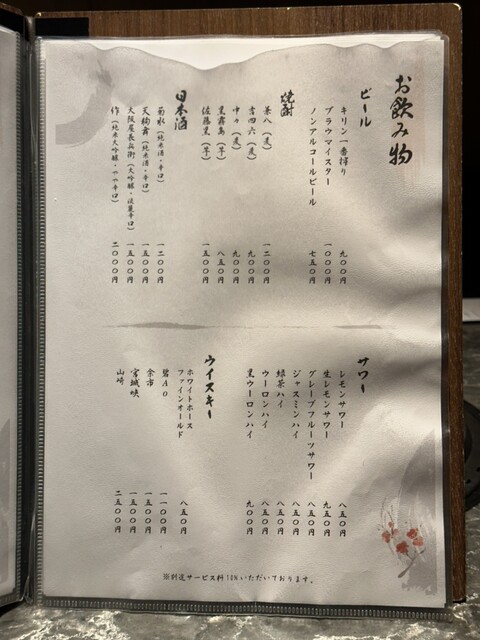 お飲み物
ビール
キリン一番搾り 九〇〇円
ブラウマイスター 一〇〇〇円
ノンアルコールビール 七五〇円
焼酎
兼八（麦） 一二〇〇円
吉四六（麦） 九〇〇円
中々（麦） 九〇〇円
黒霧島（芋） 八五〇円
佐藤黒（芋） 一五〇〇円
日本酒
菊水（純米酒・辛口） 一二〇〇円
天狗舞（純米酒・辛口） 一五〇〇円
大阪屋長兵衛（大吟醸・淡麗辛口） 一五〇〇円
作（純米大吟醸・やや辛口） 二〇〇〇円
サワー
レモンサワー 八五〇円
生レモンサワー 九五〇円
グレープフルーツサワー 八五〇円
ジャスミンハイ 八五〇円
緑茶ハイ 八五〇円
ウーロンハイ 八五〇円
黒ウーロンハイ 九〇〇円
ウイスキー
ホワイトホース
ファインオールド 八五〇円
碧Ao 一一〇〇円
余市 一五〇〇円
宮城峡 一五〇〇円
山崎 二五〇〇円
※別途サービス料10%いただいております。